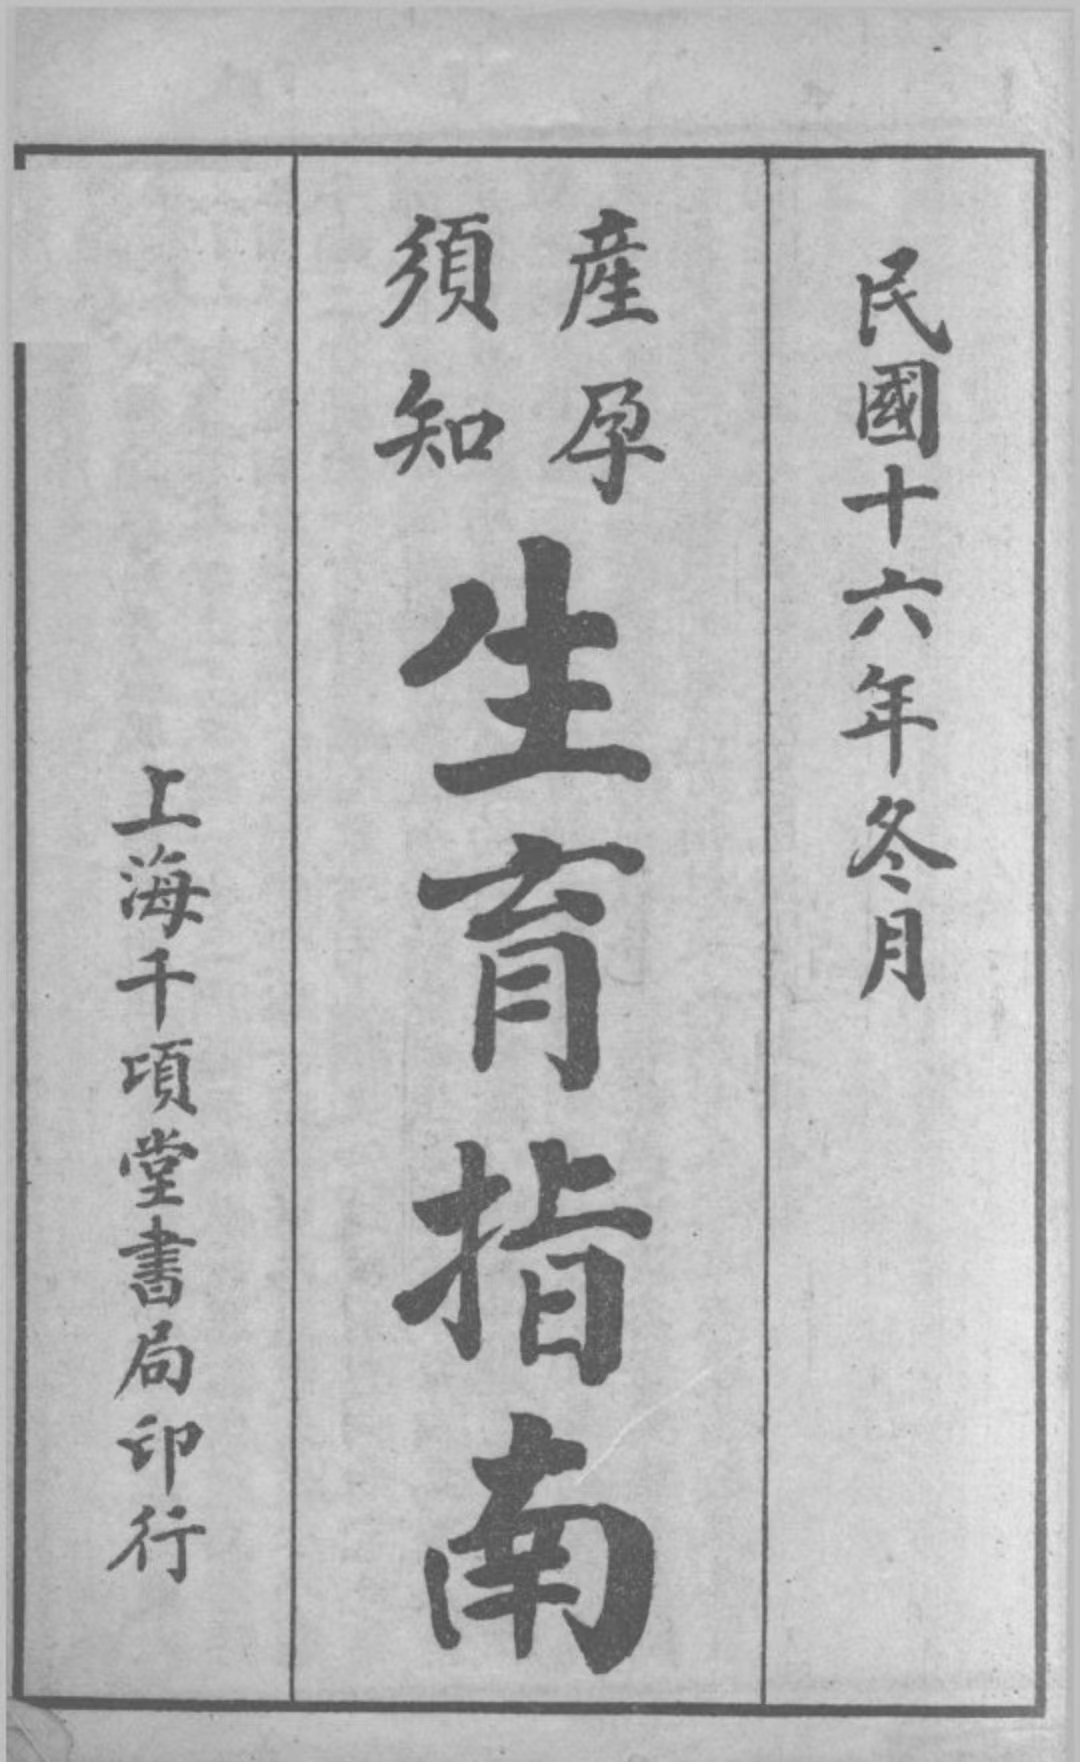 民國十六年冬月
產孕
須知
生育指南
上海千頃堂書局印行